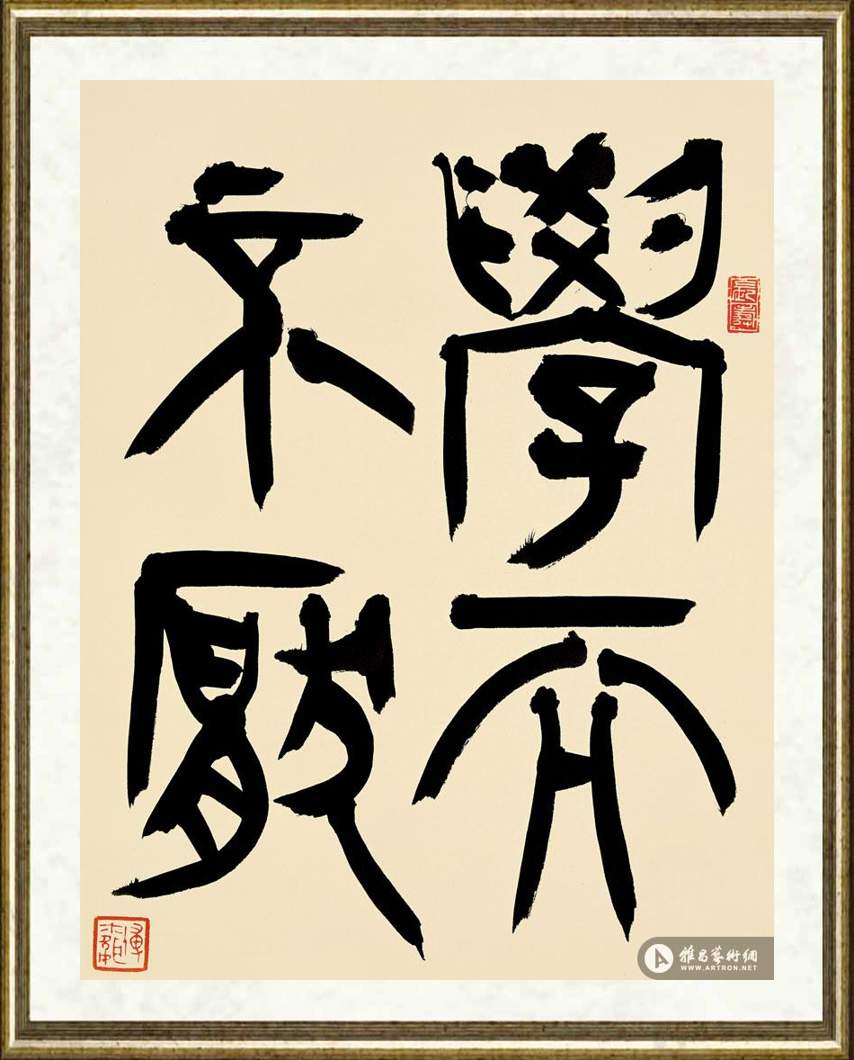 學而
不厭
雅昌藝術網
WWW.ARTRON.NET